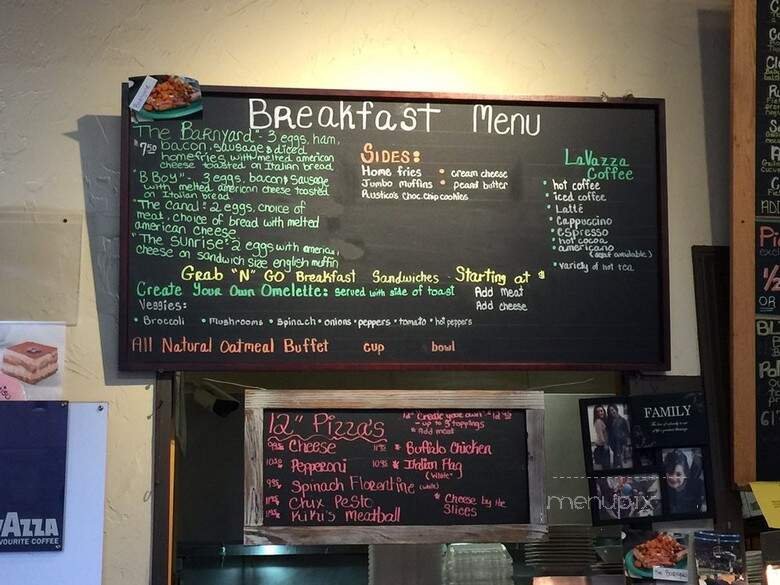 Breakfast Menu
"The Barnyard"- 3 eggs, ham,
7.50 bacon, sausage & diced
homefries with melted american
cheese toasted on Italian bread
"B Boy" - 3 eggs, bacon & sausage
with melted american cheese toasted
on Italian bread
"The Canal: 2 eggs, choice of
meat, choice of bread with melted
american cheese
"The Sunrise: 2 eggs with american
cheese on sandwich size english muffin
SIDES:
Home fries • cream cheese
Jumbo muffins • peanut butter
Rustico's Choc. chip cookies
LaVazza
Coffee
• hot coffee
• iced coffee
• Latte
• Cappuccino
• espresso
• hot cocoa
• americano
(decaf available)
• variety of hot tea
Grab "N" GO Breakfast Sandwiches - Starting at $
Create Your Own Omelette: served with side of toast Add meat
Veggies: Add cheese
• Broccoli • Mushrooms • Spinach • onions • peppers • tomato • hot peppers
All Natural Oatmeal Buffet cup bowl
12" Pizza's
Cheese
Pepperoni
Spinach Florentine (white)
Chix Pesto
Kiki's Meatball
12" "Create your own"
- up to 3 toppings
* Add meat
* Buffalo Chicken
* Italian Flag
(white)
* Cheese by the
Slices
FAMILY
menupix
AZZA
VOURITE COFFEE